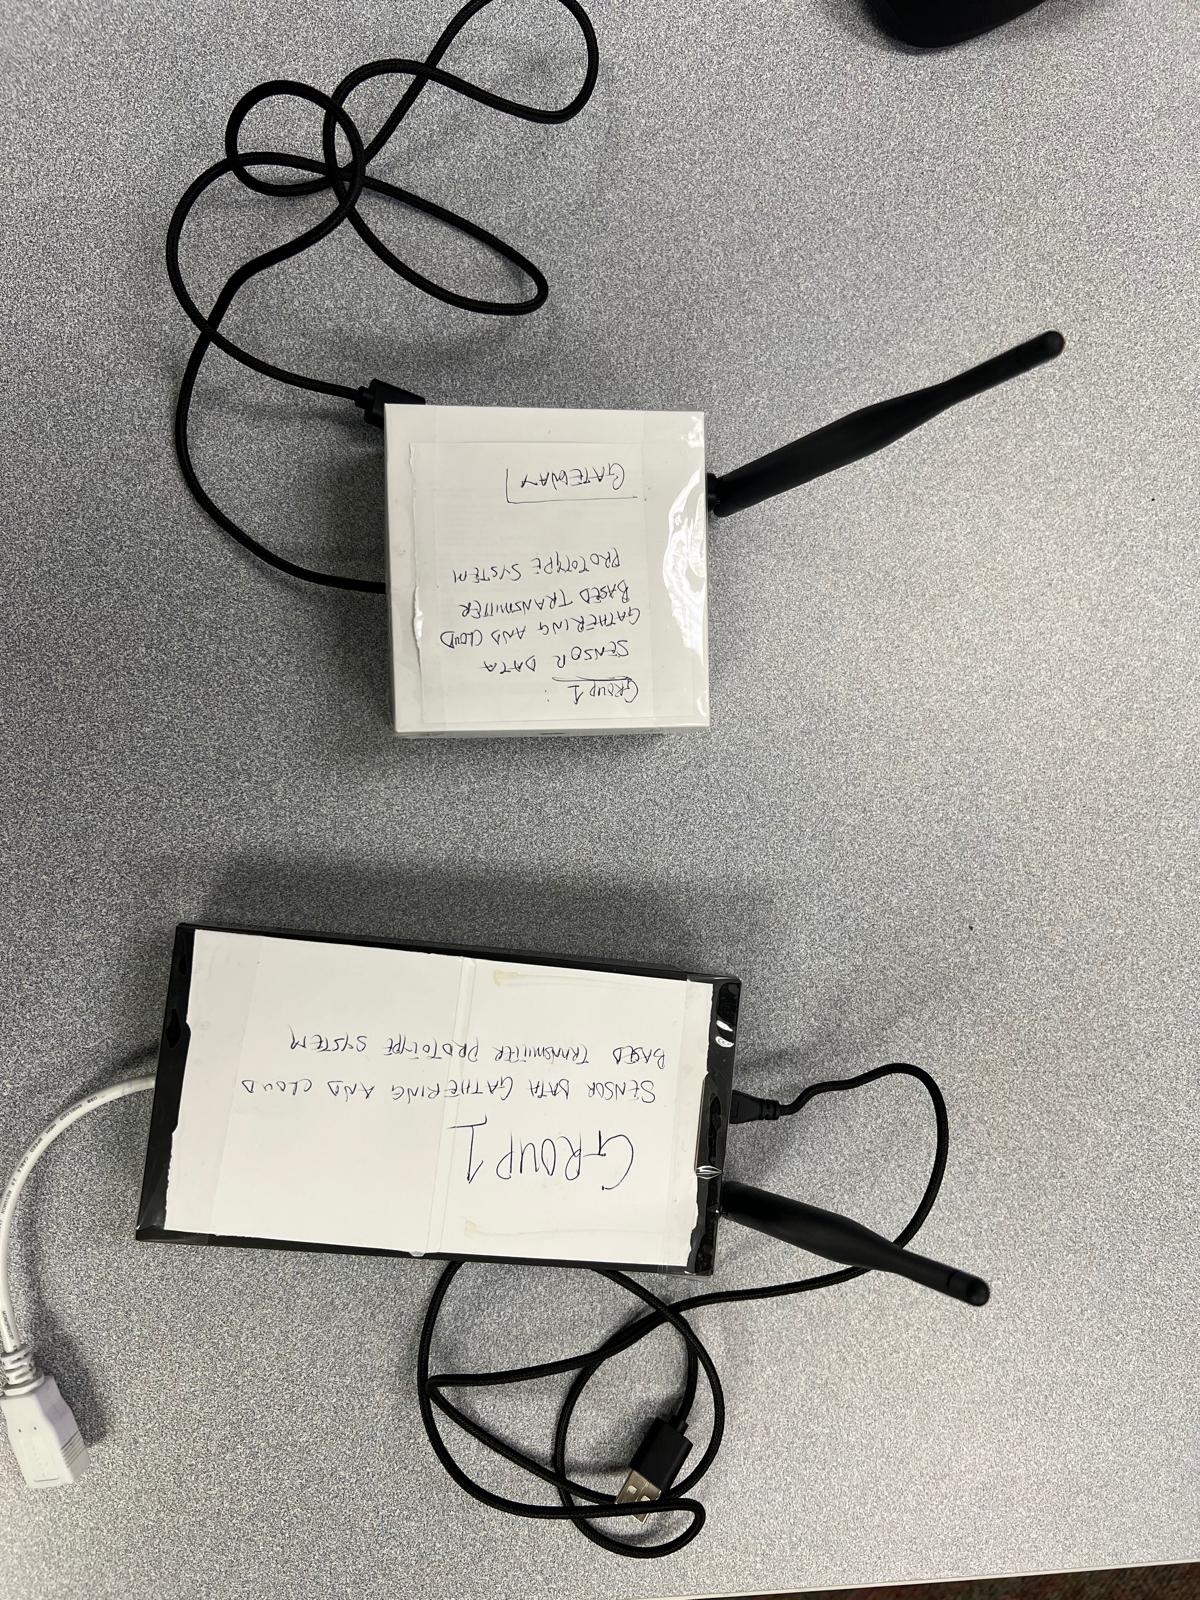 GROUP 1 :
SENSOR DATA
GATHERING AND CLOUD
BASED TRANSMITTER
PROTOTYPE SYSTEM
GATEWAY
GROUP 1
SENSOR DATA GATHERING AND CLOUD
BASED TRANSMITTER PROTOTYPE SYSTEM